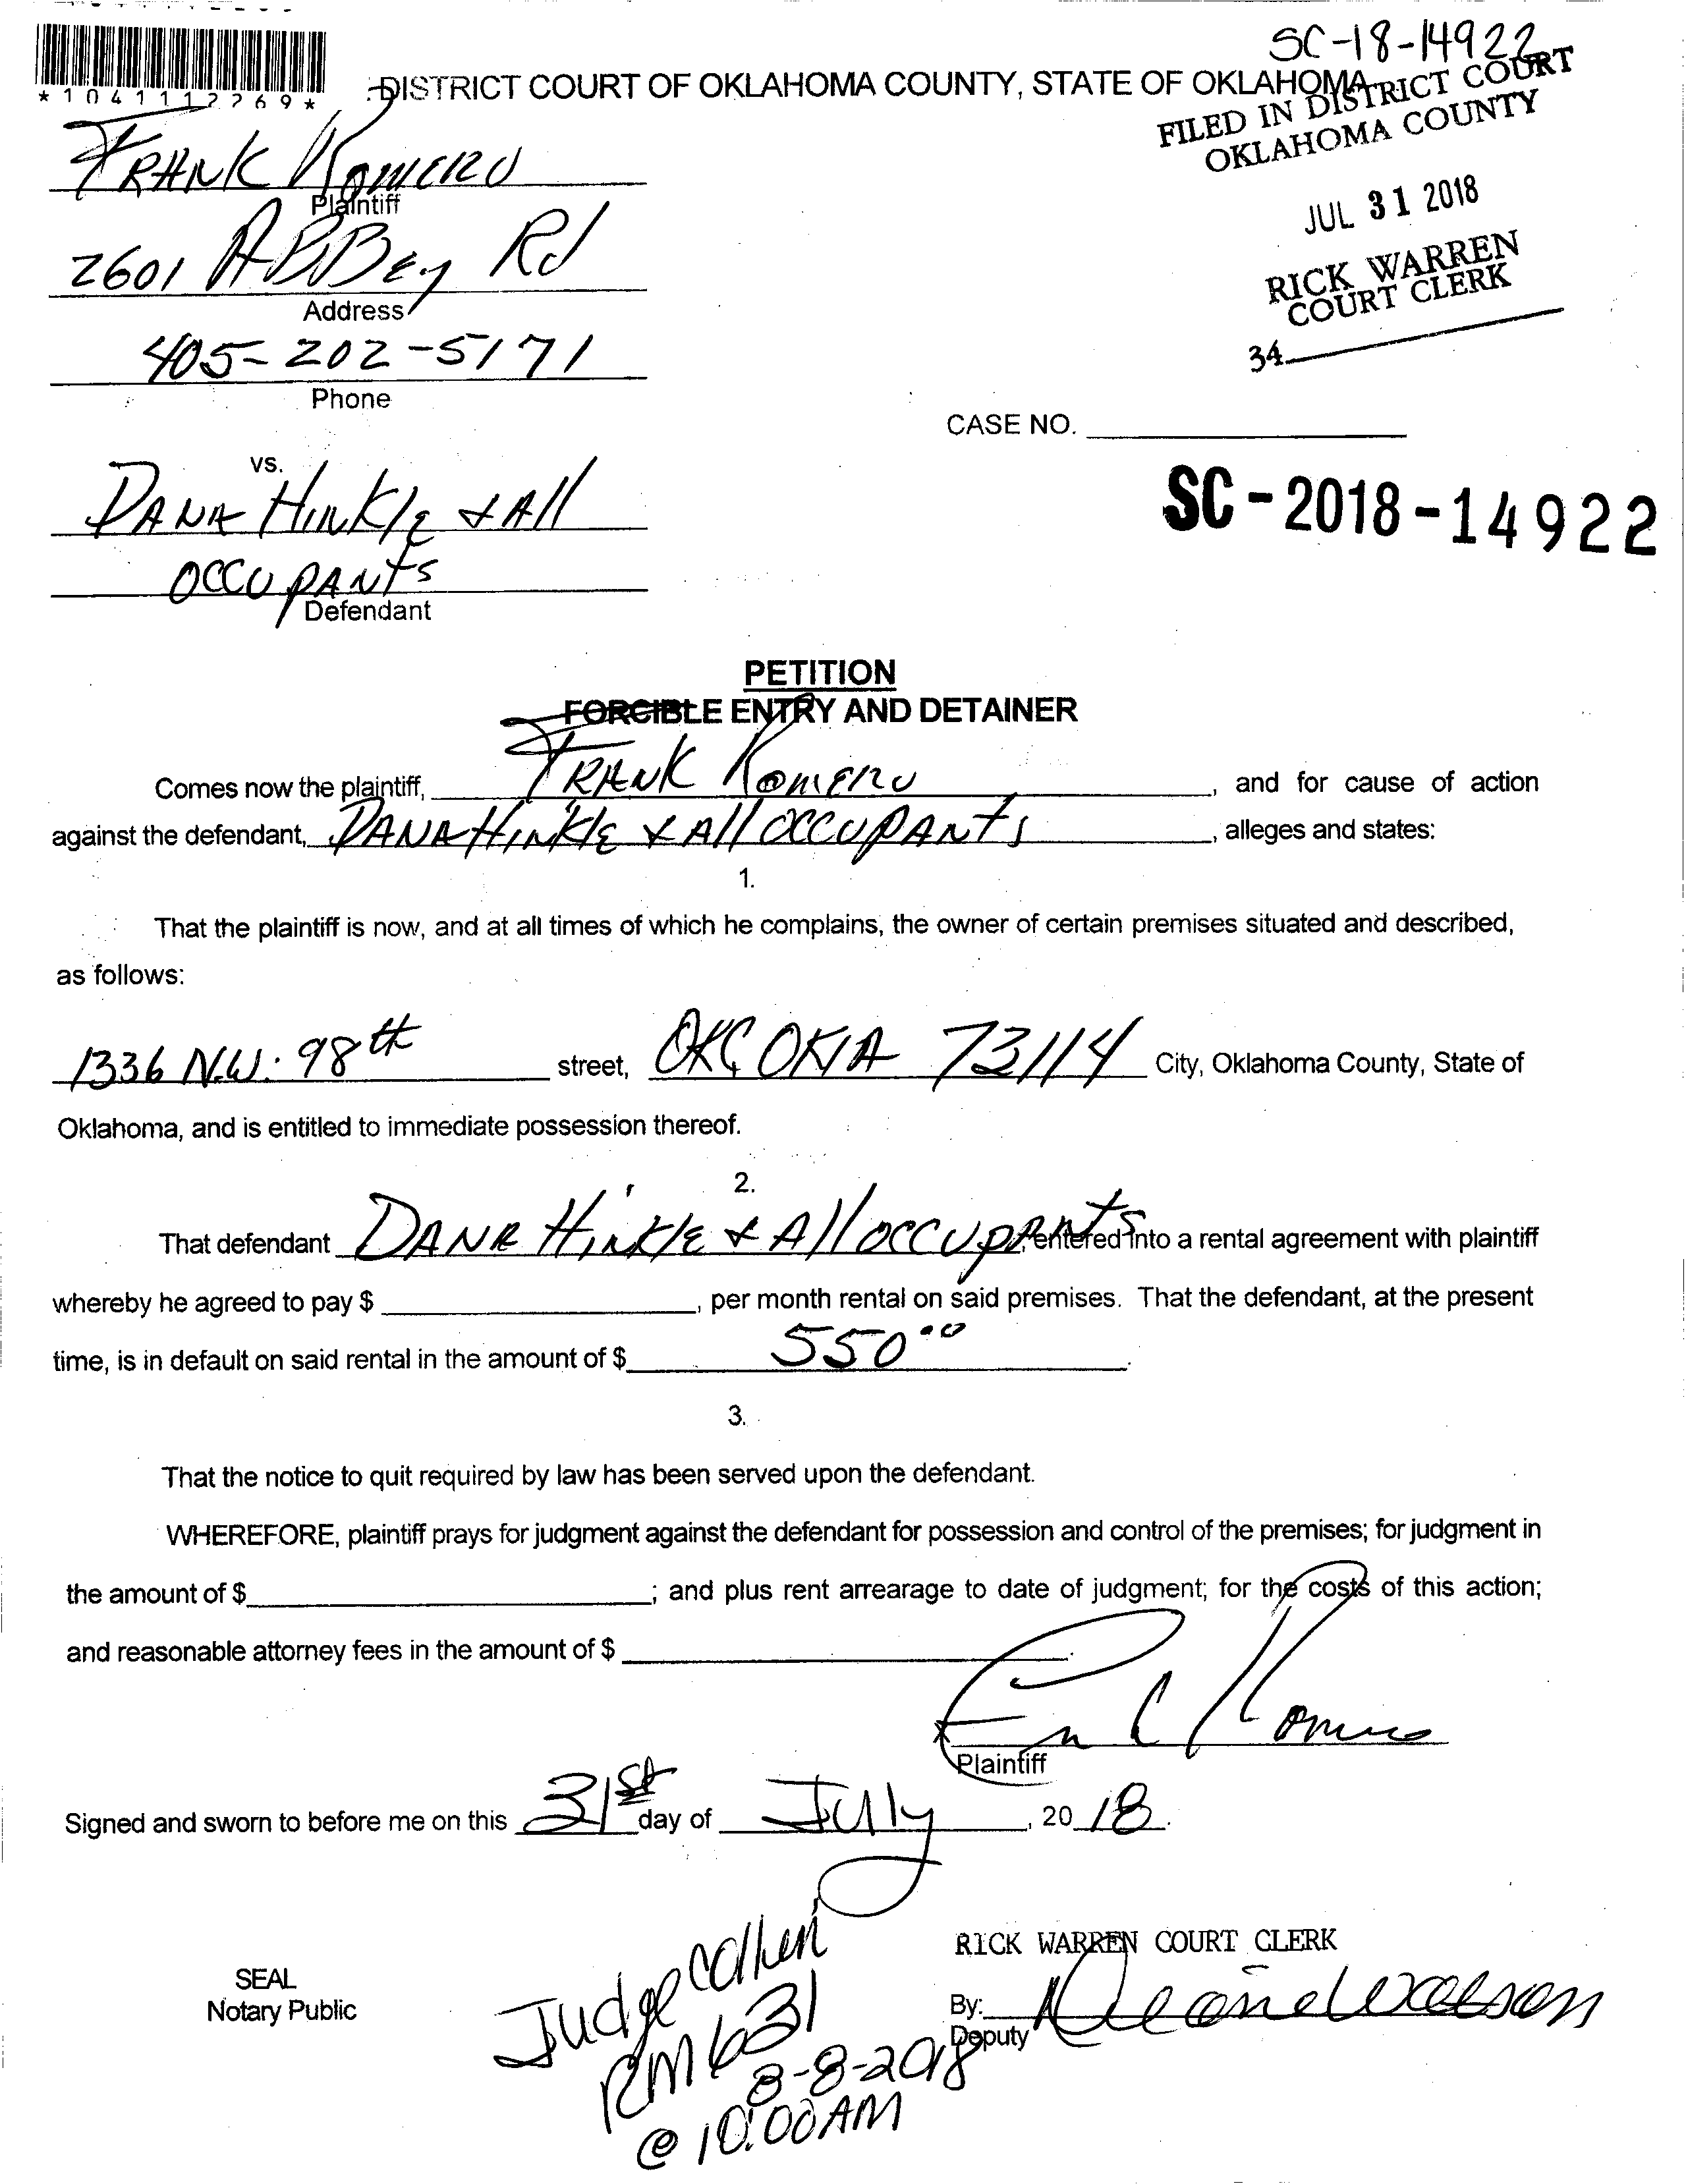 SC-18-14922
*1041112269*
DISTRICT COURT OF OKLAHOMA COUNTY, STATE OF OKLAHOMA
FILED IN DISTRICT COURT
OKLAHOMA COUNTY
JUL 31 2018
RICK WARREN
COURT CLERK
34
FRANK ROMERO
Plaintiff
2601 ABBEY Rd
Address
405-202-5171
Phone
CASE NO.
SC-2018-14922
vs.
DANA HINKLE & All
OCCUPANTS
Defendant
PETITION
FORCIBLE ENTRY AND DETAINER
Comes now the plaintiff, FRANK ROMERO, and for cause of action
against the defendant, DANA HINKLE & All OCCUPANTS, alleges and states:
1.
That the plaintiff is now, and at all times of which he complains, the owner of certain premises situated and described,
as follows:
1336 N.W. 98th street, OKC OKLA 73114 City, Oklahoma County, State of
Oklahoma, and is entitled to immediate possession thereof.
2.
That defendant DANA HINKLE & All OCCUPANTS, entered into a rental agreement with plaintiff
whereby he agreed to pay $, per month rental on said premises. That the defendant, at the present
time, is in default on said rental in the amount of $ 550.00.
3.
That the notice to quit required by law has been served upon the defendant.
WHEREFORE, plaintiff prays for judgment against the defendant for possession and control of the premises; for judgment in
the amount of $; and plus rent arrearage to date of judgment; for the costs of this action;
and reasonable attorney fees in the amount of $.
Plaintiff
Signed and sworn to before me on this 31st day of July, 2018.
RICK WARREN COURT CLERK
SEAL
Notary Public
By:
Deputy
Judge
RM 631
8-8-2018
@ 10:00 AM